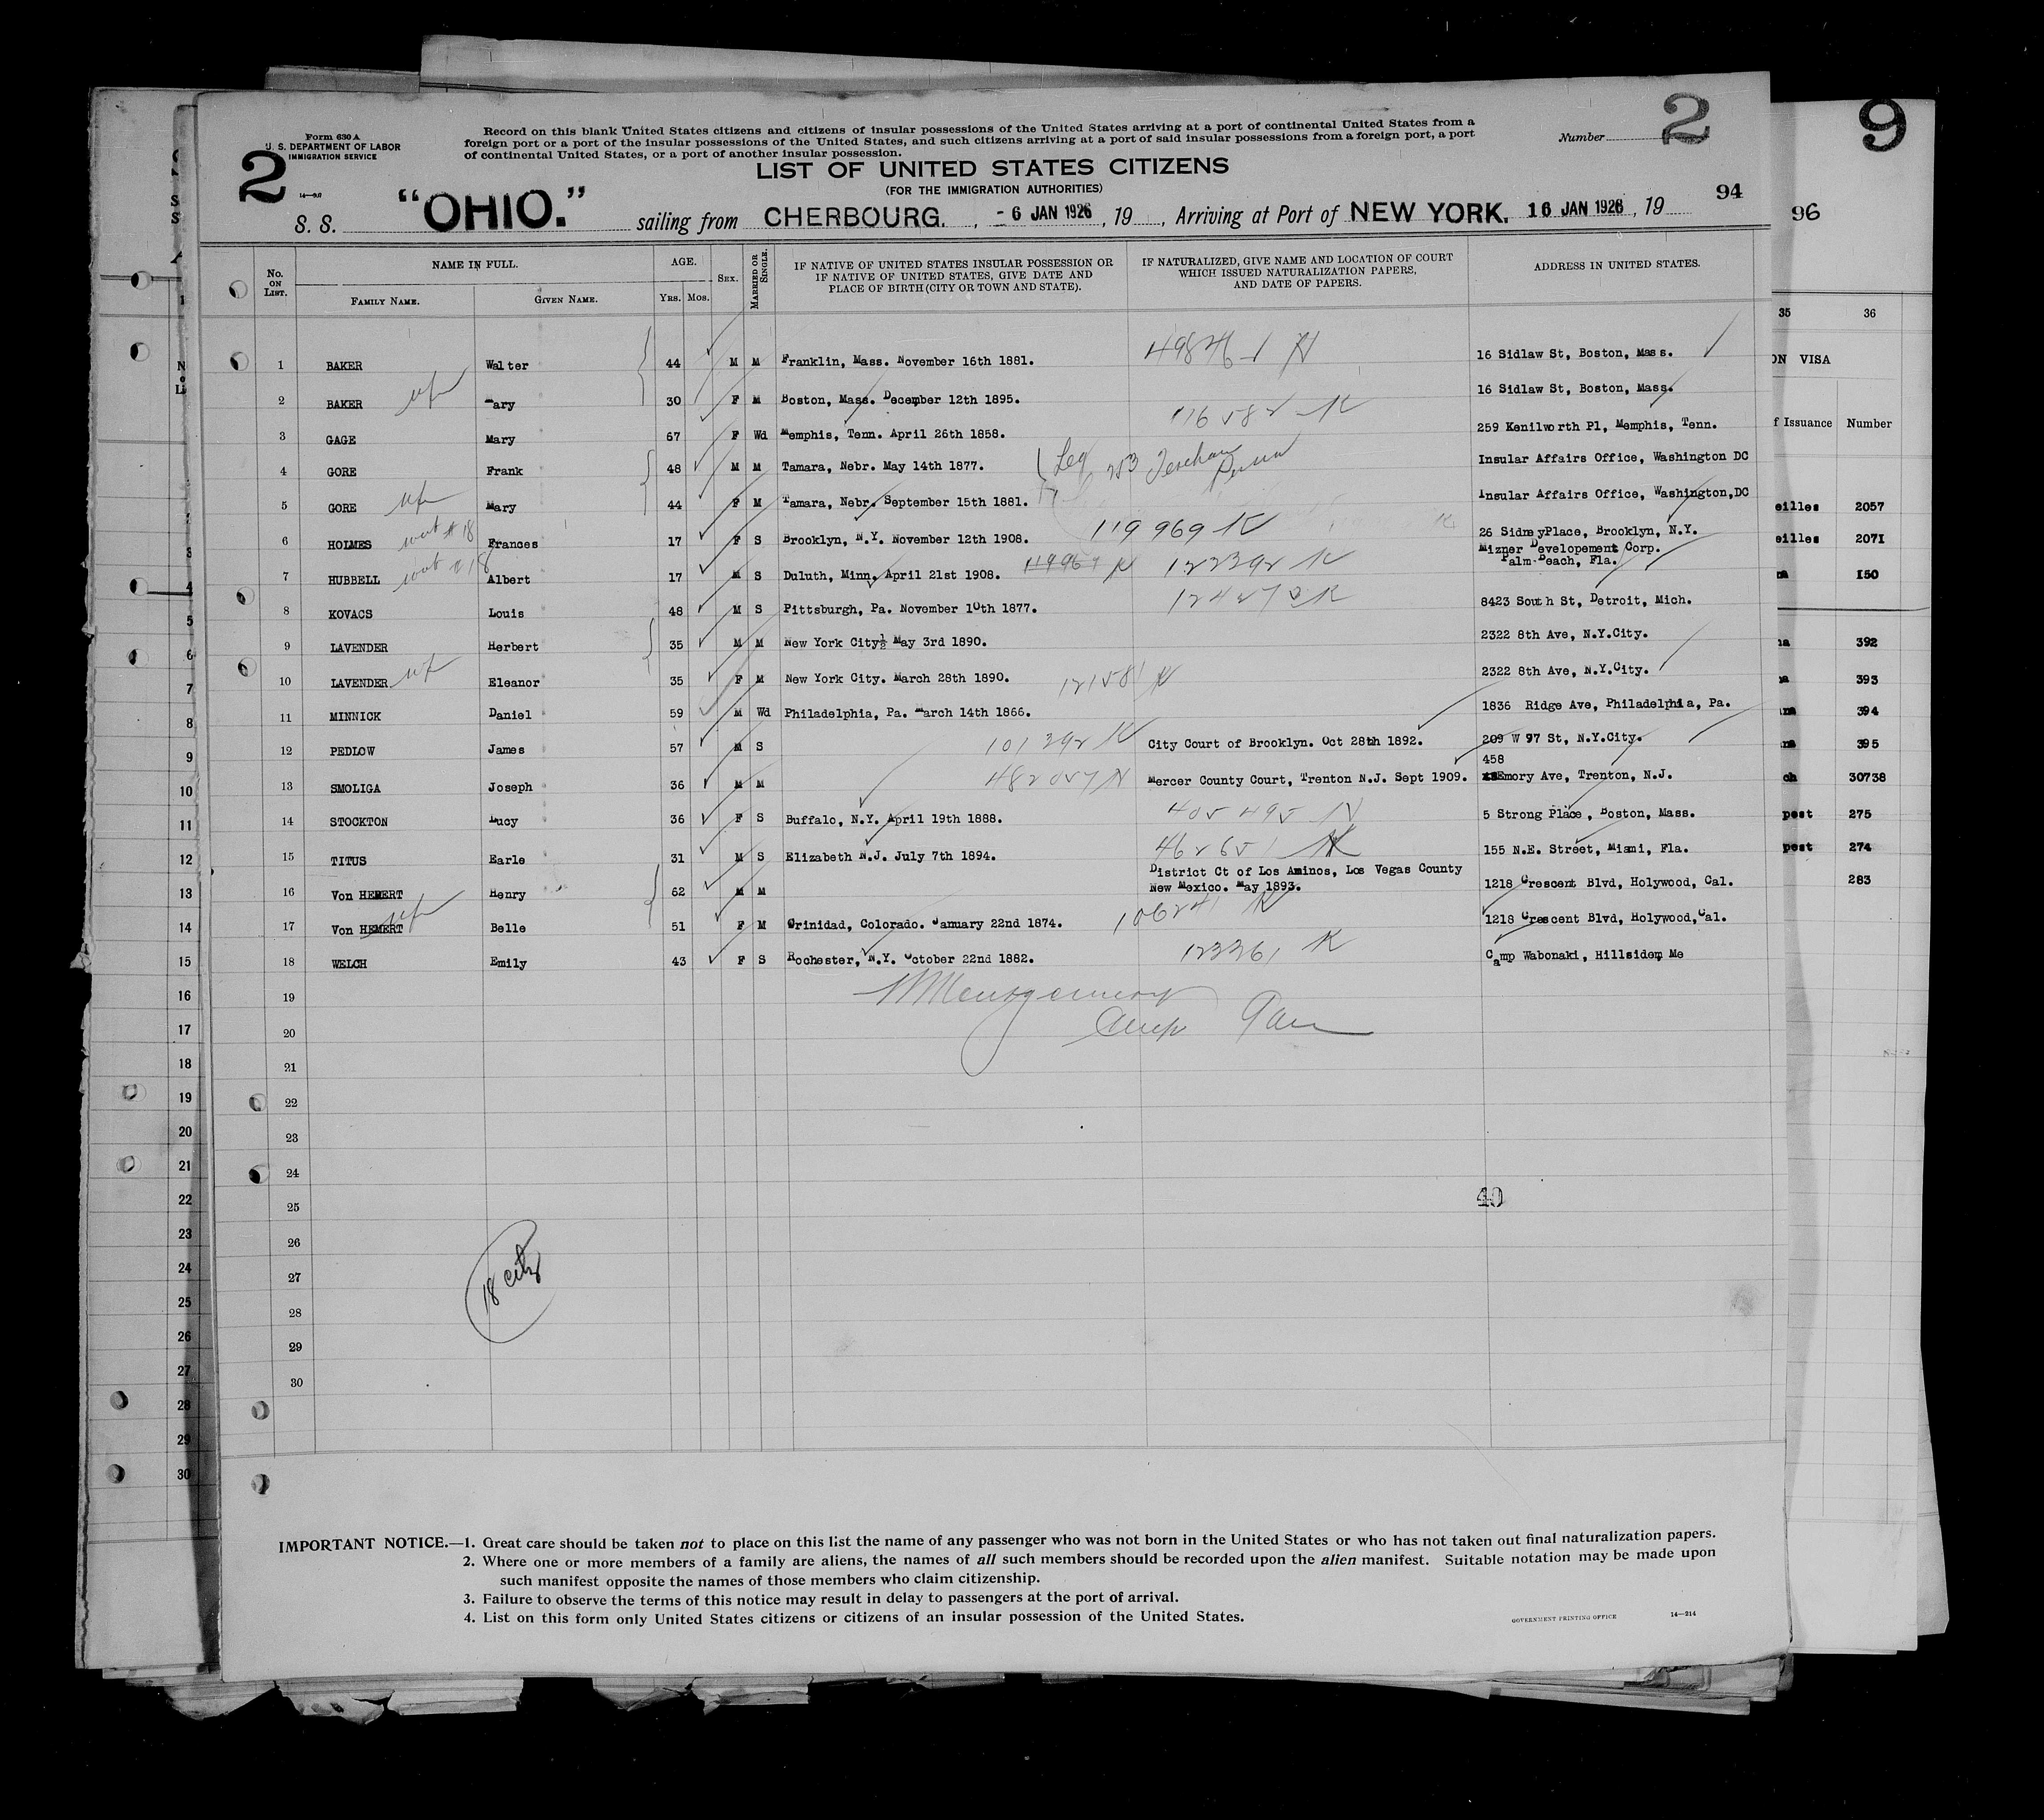 Form 630 A
U. S. DEPARTMENT OF LABOR
IMMIGRATION SERVICE
Record on this blank United States citizens and citizens of insular possessions of the United States arriving at a port of continental United States from a
foreign port or a port of the insular possessions of the United States, and such citizens arriving at a port of said insular possessions from a foreign port, a port
of continental United States, or a port of another insular possession.
Number 2
2
LIST OF UNITED STATES CITIZENS
(FOR THE IMMIGRATION AUTHORITIES)
94
S. S. "OHIO." sailing from CHERBOURG. , - 6 JAN 1926 , 19 , Arriving at Port of NEW YORK. 16 JAN 1926 , 19
No. ON LIST. NAME IN FULL. AGE. SEX. MARRIED OR SINGLE. IF NATIVE OF UNITED STATES INSULAR POSSESSION OR IF NATIVE OF UNITED STATES, GIVE DATE AND PLACE OF BIRTH (CITY OR TOWN AND STATE). IF NATURALIZED, GIVE NAME AND LOCATION OF COURT WHICH ISSUED NATURALIZATION PAPERS, AND DATE OF PAPERS. ADDRESS IN UNITED STATES.
FAMILY NAME. GIVEN NAME. Yrs. Mos.
1 BAKER Walter 44 M M Franklin, Mass. November 16th 1881. 16 Sidlaw St, Boston, Mass.
2 BAKER Mary 30 F M Boston, Mass. December 12th 1895. 16 Sidlaw St, Boston, Mass.
3 GAGE Mary 67 F Wd Memphis, Tenn. April 26th 1858. 116582 K 259 Kenilworth Pl, Memphis, Tenn.
4 GORE Frank 48 M M Tamara, Nebr. May 14th 1877. Insular Affairs Office, Washington DC
5 GORE Mary 44 F M Tamara, Nebr. September 15th 1881. Insular Affairs Office, Washington,DC
6 HOLMES Frances 17 F S Brooklyn, N.Y. November 12th 1908. 119969 K 26 SidneyPlace, Brooklyn, N.Y.
7 HUBBELL Albert 17 M S Duluth, Minn. April 21st 1908. 122392 K Mizner Developement Corp.
Palm-Beach, Fla.
8 KOVACS Louis 48 M S Pittsburgh, Pa. November 10th 1877. 8423 South St, Detroit, Mich.
9 LAVENDER Herbert 35 M M New York City½ May 3rd 1890. 2322 8th Ave, N.Y.City.
10 LAVENDER Eleanor 35 F M New York City. March 28th 1890. 2322 8th Ave, N.Y.City.
11 MINNICK Daniel 59 M Wd Philadelphia, Pa. March 14th 1866. 121581 K 1836 Ridge Ave, Philadelphia, Pa.
12 PEDLOW James 57 M S 101392 K City Court of Brooklyn. Oct 28th 1892. 209 W 97 St, N.Y.City.
458
13 SMOLIGA Joseph 36 M M 482057 N Mercer County Court, Trenton N.J. Sept 1909. Emory Ave, Trenton, N.J.
14 STOCKTON Lucy 36 F S Buffalo, N.Y. April 19th 1888. 405495 N 5 Strong Place, Boston, Mass.
15 TITUS Earle 31 M S Elizabeth N.J. July 7th 1894. 462651 155 N.E. Street, Miami, Fla.
16 Von HEMERT Henry 62 M M District Ct of Los Aminos, Los Vegas County
New Mexico. May 1893. 1218 Crescent Blvd, Holywood, Cal.
17 Von HEMERT Belle 51 F M Trinidad, Colorado. January 22nd 1874. 106241 K 1218 Crescent Blvd, Holywood,Cal.
18 WELCH Emily 43 F S Rochester, N.Y. October 22nd 1882. 123361 K Camp Wabonaki, Hillsidem, Me
19
Montgomery
20
21
22
23
24
25
40
26
27
28
29
30
18 city
IMPORTANT NOTICE.—1. Great care should be taken not to place on this list the name of any passenger who was not born in the United States or who has not taken out final naturalization papers.
2. Where one or more members of a family are aliens, the names of all such members should be recorded upon the alien manifest. Suitable notation may be made upon
such manifest opposite the names of those members who claim citizenship.
3. Failure to observe the terms of this notice may result in delay to passengers at the port of arrival.
4. List on this form only United States citizens or citizens of an insular possession of the United States.
GOVERNMENT PRINTING OFFICE 14—214
9
96
35 36
ON VISA
f Issuance Number
eilles 2057
eilles 2071
150
392
393
394
395
ch 30738
pest 275
pest 274
283
4
5
6
7
8
9
10
11
12
13
14
15
16
17
18
19
20
21
22
23
24
25
26
27
28
29
30